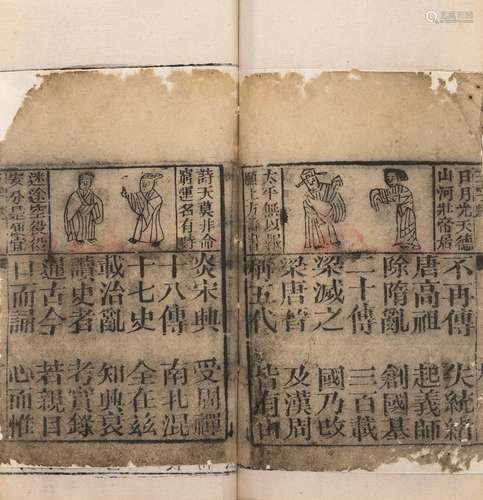 日月光天德
山河壯帝居
太平無以報
願上
不再傳 失統緒
唐高祖 起義師
除隋亂 創國基
二十傳 三百載
梁滅之 國乃改
梁唐晉 及漢周
稱五代 皆有由
莫非命
窮 各有時
迷途空役役
安分是便宜
炎宋興 受周禪
十八傳 南北混
十七史 全在茲
載治亂 知興衰
讀史者 考實錄
通古今 若親目
口而誦 心而惟